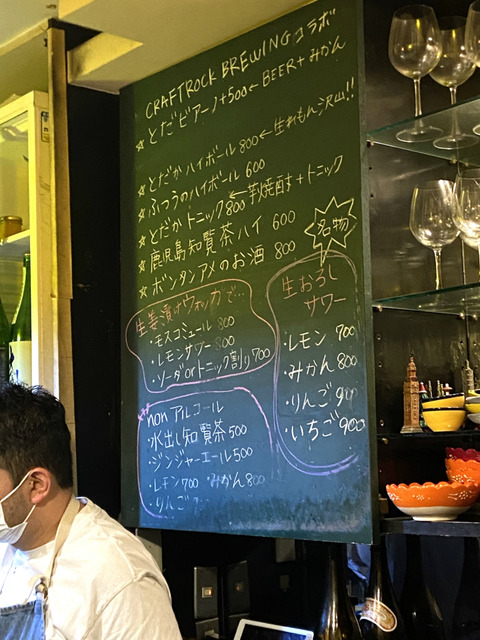 CRAFTROCK BREWINGコラボ
☆とだビアーノ+500←BEER+みかん
☆とだかハイボール 800←生れもん沢山!!
☆ふつうのハイボール 600
☆とだかトニック800←芋焼酎+トニック
☆鹿児島知覧茶ハイ 600
☆ボンタンアメのお酒 800
名物
生おろし
サワー
・レモン 700
・みかん 800
・りんご 900
・いちご 900
生姜漬けウォッカで…
・モスコミュール 800
・レモンサワー 800
・ソーダorトニック割り700
nonアルコール
・水出し知覧茶500
・ジンジャーエール500
・レモン700 みかん800
・りんご